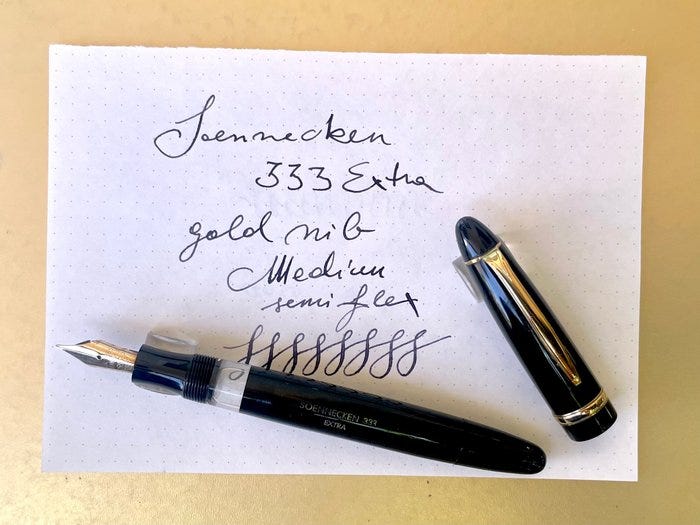 Soennecken
333 Extra
gold nib
Medium
semi flex
SOENNECKEN 333
EXTRA